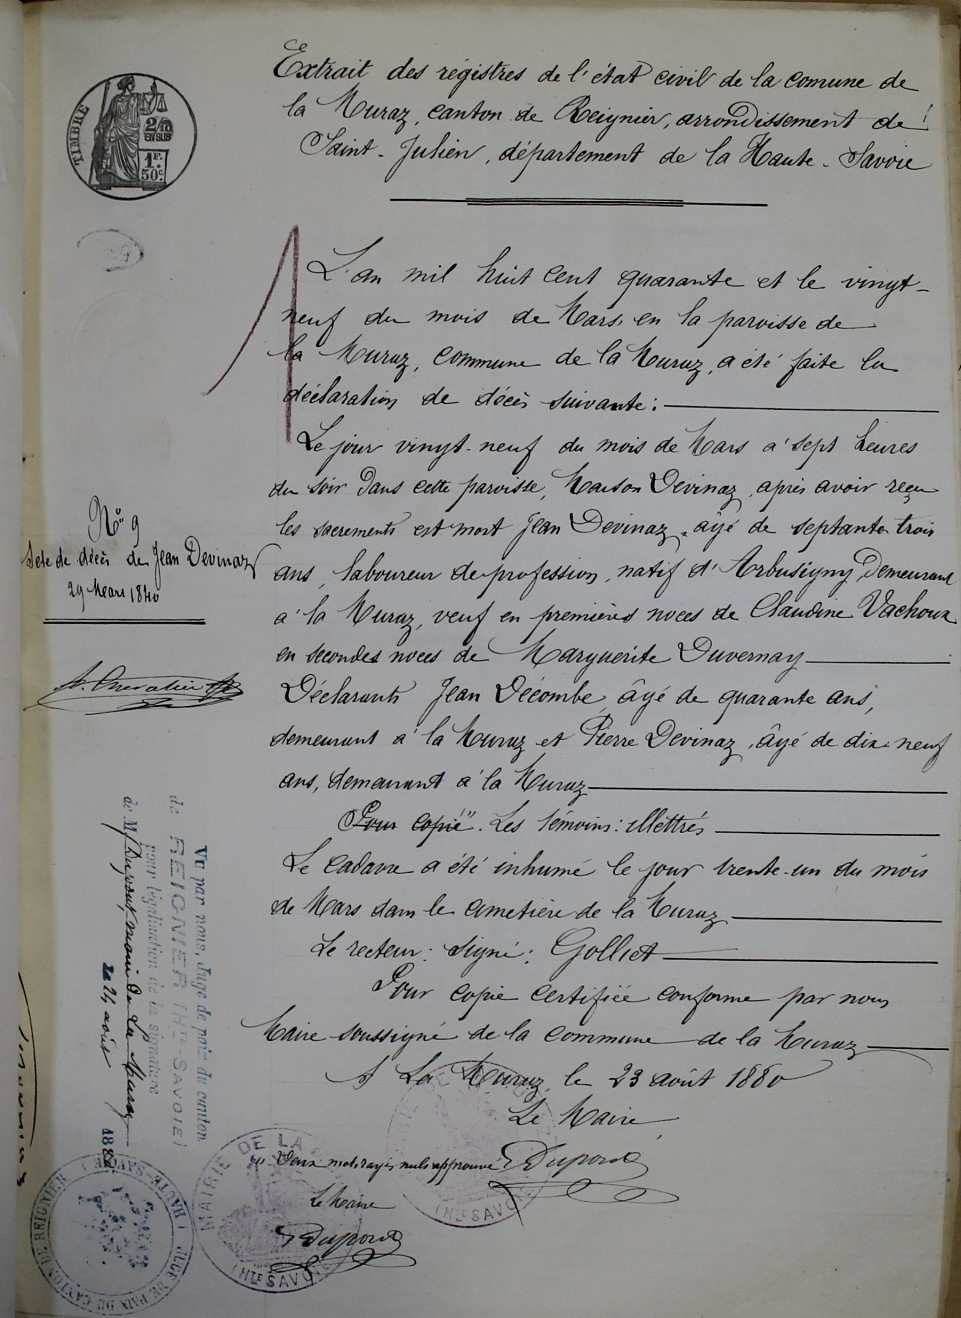 Extrait des régistres de l'état civil de la comune de
la Muraz, canton de Reignier, arrondissement de
Saint-Julien, département de la Haute-Savoie
TIMBRE
2/10
EN SUS
1F.
50c.
L'an mil huit cent quarante et le vingt-
neuf du mois de Mars, en la paroisse de
la Muraz, commune de la Muraz, a été faite la
déclaration de décès suivante:
Le jour vingt-neuf du mois de Mars a' sept heures
du soir dans cette paroisse, Maison Devinaz, après avoir reçu
les sacrements est mort Jean Devinaz, âgé de septante-trois
ans, laboureur de profession, natif d'Arbusigny, Demeurant
a' la Muraz, veuf en premières noces de Claudine Vachoux
en secondes noces de Marguerite Duvernay
Déclarants Jean Décombe, âgé de quarante ans,
demeurant a' la Muraz et Pierre Devinaz, âgé de dix-neuf
ans, demeurant a' la Muraz
Pour copie". Les témoins: illettrés
Le cadavre a été inhumé le jour trente-un du mois
de Mars dans le cimetière de la Muraz
Le recteur: signé: Golliet
Pour copie certifiée conforme par nous
Maire soussigné de la commune de la Muraz
A La Muraz, le 23 août 1880
Le Maire
Dupont
Deux mots rayés nuls approuvé
Le Maire
Dupont
No 9
Acte de décès de Jean Devinaz
29 Mars 1840
Chevalier
Vu par nous, Juge de paix du canton
de REIGNIER (Hte-SAVOIE)
pour légalisation de la signature
de M. Dupont, maire de La Muraz
Le 24 août 1880
MAIRIE DE LA
(Hte SAVOIE)
(Hte SAVOIE)
JUGE DE PAIX DU CANTON DE REIGNIER (HAUTE-SAVOIE)